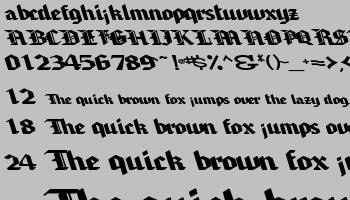 abcdefghijklmnopqrstuvwxyz
ABCDEFGHIJKLMNOPQRS
0123456789~!#$%^&*()-_+=><
12 The quick brown fox jumps over the lazy dog.
18 The quick brown fox jumps ov
24 The quick brown fox j
The quick brow